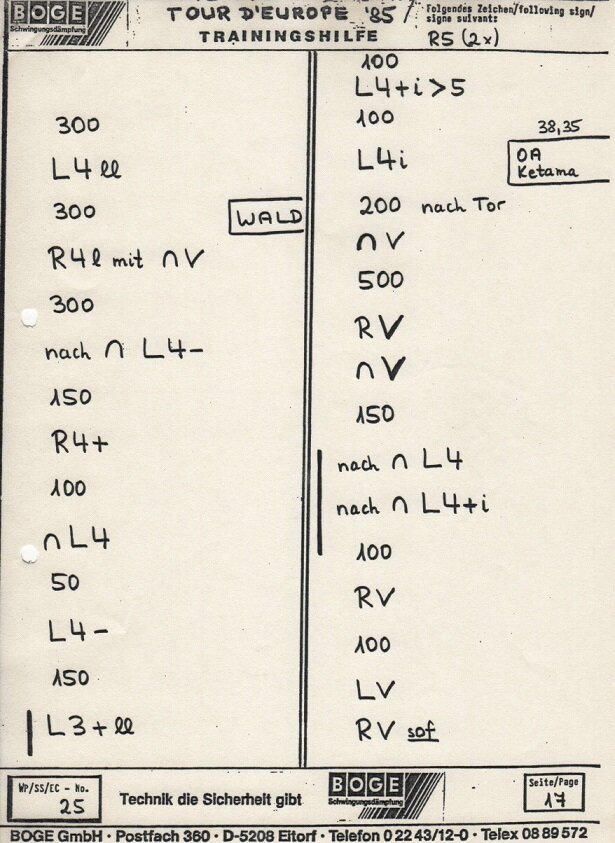 BOGE
Schwingungsdämpfung
TOUR D'EUROPE '85
TRAININGSHILFE
Folgendes Zeichen/following sign/
signe suivant:
R5 (2x)
300
L4 ll
300
WALD
R4 l mit ∩ V
300
nach ∩ L4-
150
R4+
100
∩ L4
50
L4-
150
L3+ ll
100
L4+i>5
100
38,35
L4i
OA
Ketama
200 nach Tor
∩ V
500
RV
∩ V
150
nach ∩ L4
nach ∩ L4+i
100
RV
100
LV
RV sof
WP/SS/EC - No.
25
Technik die Sicherheit gibt
BOGE
Schwingungsdämpfung
Seite/Page
17
BOGE GmbH · Postfach 360 · D-5208 Eitorf · Telefon 0 22 43/12-0 · Telex 08 89 572